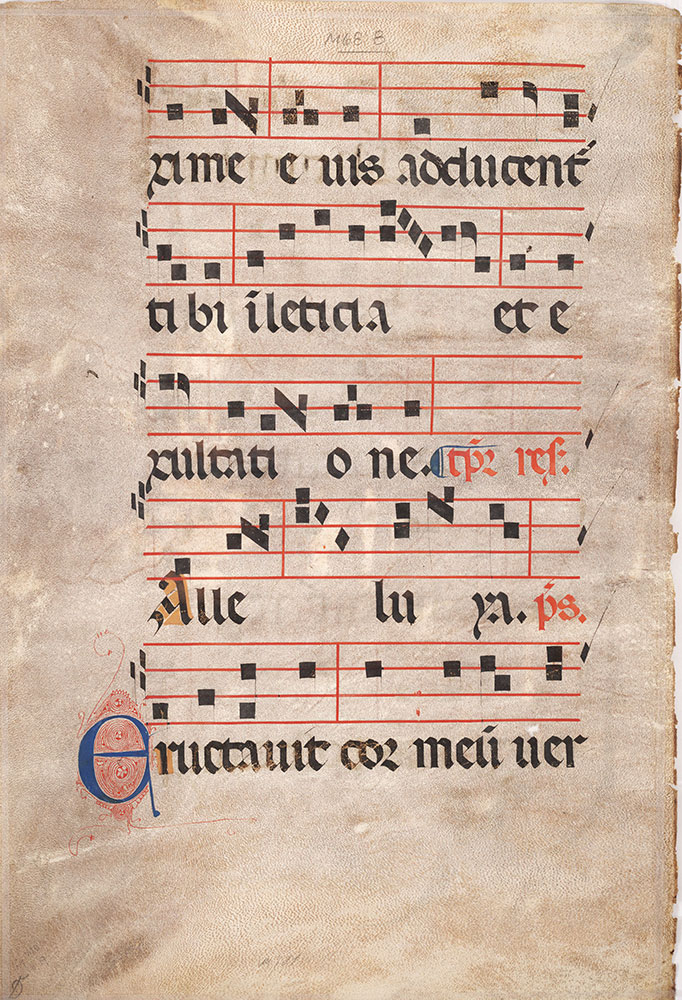 M68 B
xime e uis adducent͛
tibi īleticia et e
xultati o ne. tp̄r res̄:
Alle lu ya. p̄s.
Eructauit cor meū uer